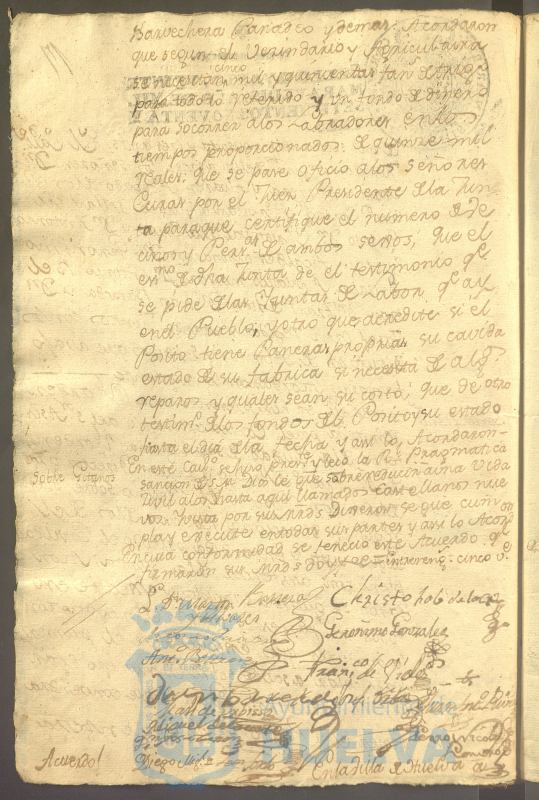 Barvechera Panadeo y demas Acordaron
que segun el Vecindario y Agricultura
se necesitan cinco mil y quinientas fan.s de trigo
para todo lo referido y un fondo de dinero
para socorrer a los Labradores en los
tiempos proporcionados de quinze mil
reales: que se pase oficio a los señores
Curas por el Señor Presidente de la Jun
ta para que certifique el numero de Ve
cinos y Pers.as de ambos sexos, que el
ess.no de dha Junta de el testimonio q.e
se pide de las Juntas de Labor q.e ay
en el Pueblo, y otro que acredite si el
Posito tiene Paneras propias su cavida
estado de su fabrica si necesita de alg.s
reparos y quales sean su costo, que de otro
testim.o de los fondos del Posito y su estado
hasta el dia de la fecha y asi lo Acordaron
Sobre Gitanos
En este Cav.o se hizo pres.te y leyo la R.l Pragmatica
sancion de S.M. Dios le gue sobre reducir a una Vida
Civil a los hasta aqui llamados Castellanos nue
vos. Vista por sus mrds Dijeron se gue cum
pla y execute en todas sus partes y asi lo Acord.on
En cuia conformidad se fenecio este Acuerdo q.e
firmaron sus mrds doy fee = entrereng.s cinco v.e
Christobal de la
Geronimo Gonzalez
Fran.co de
Miguel
Diego
Acuerdo!
En la Villa de Huelva a
Ayuntamiento de
HUELVA